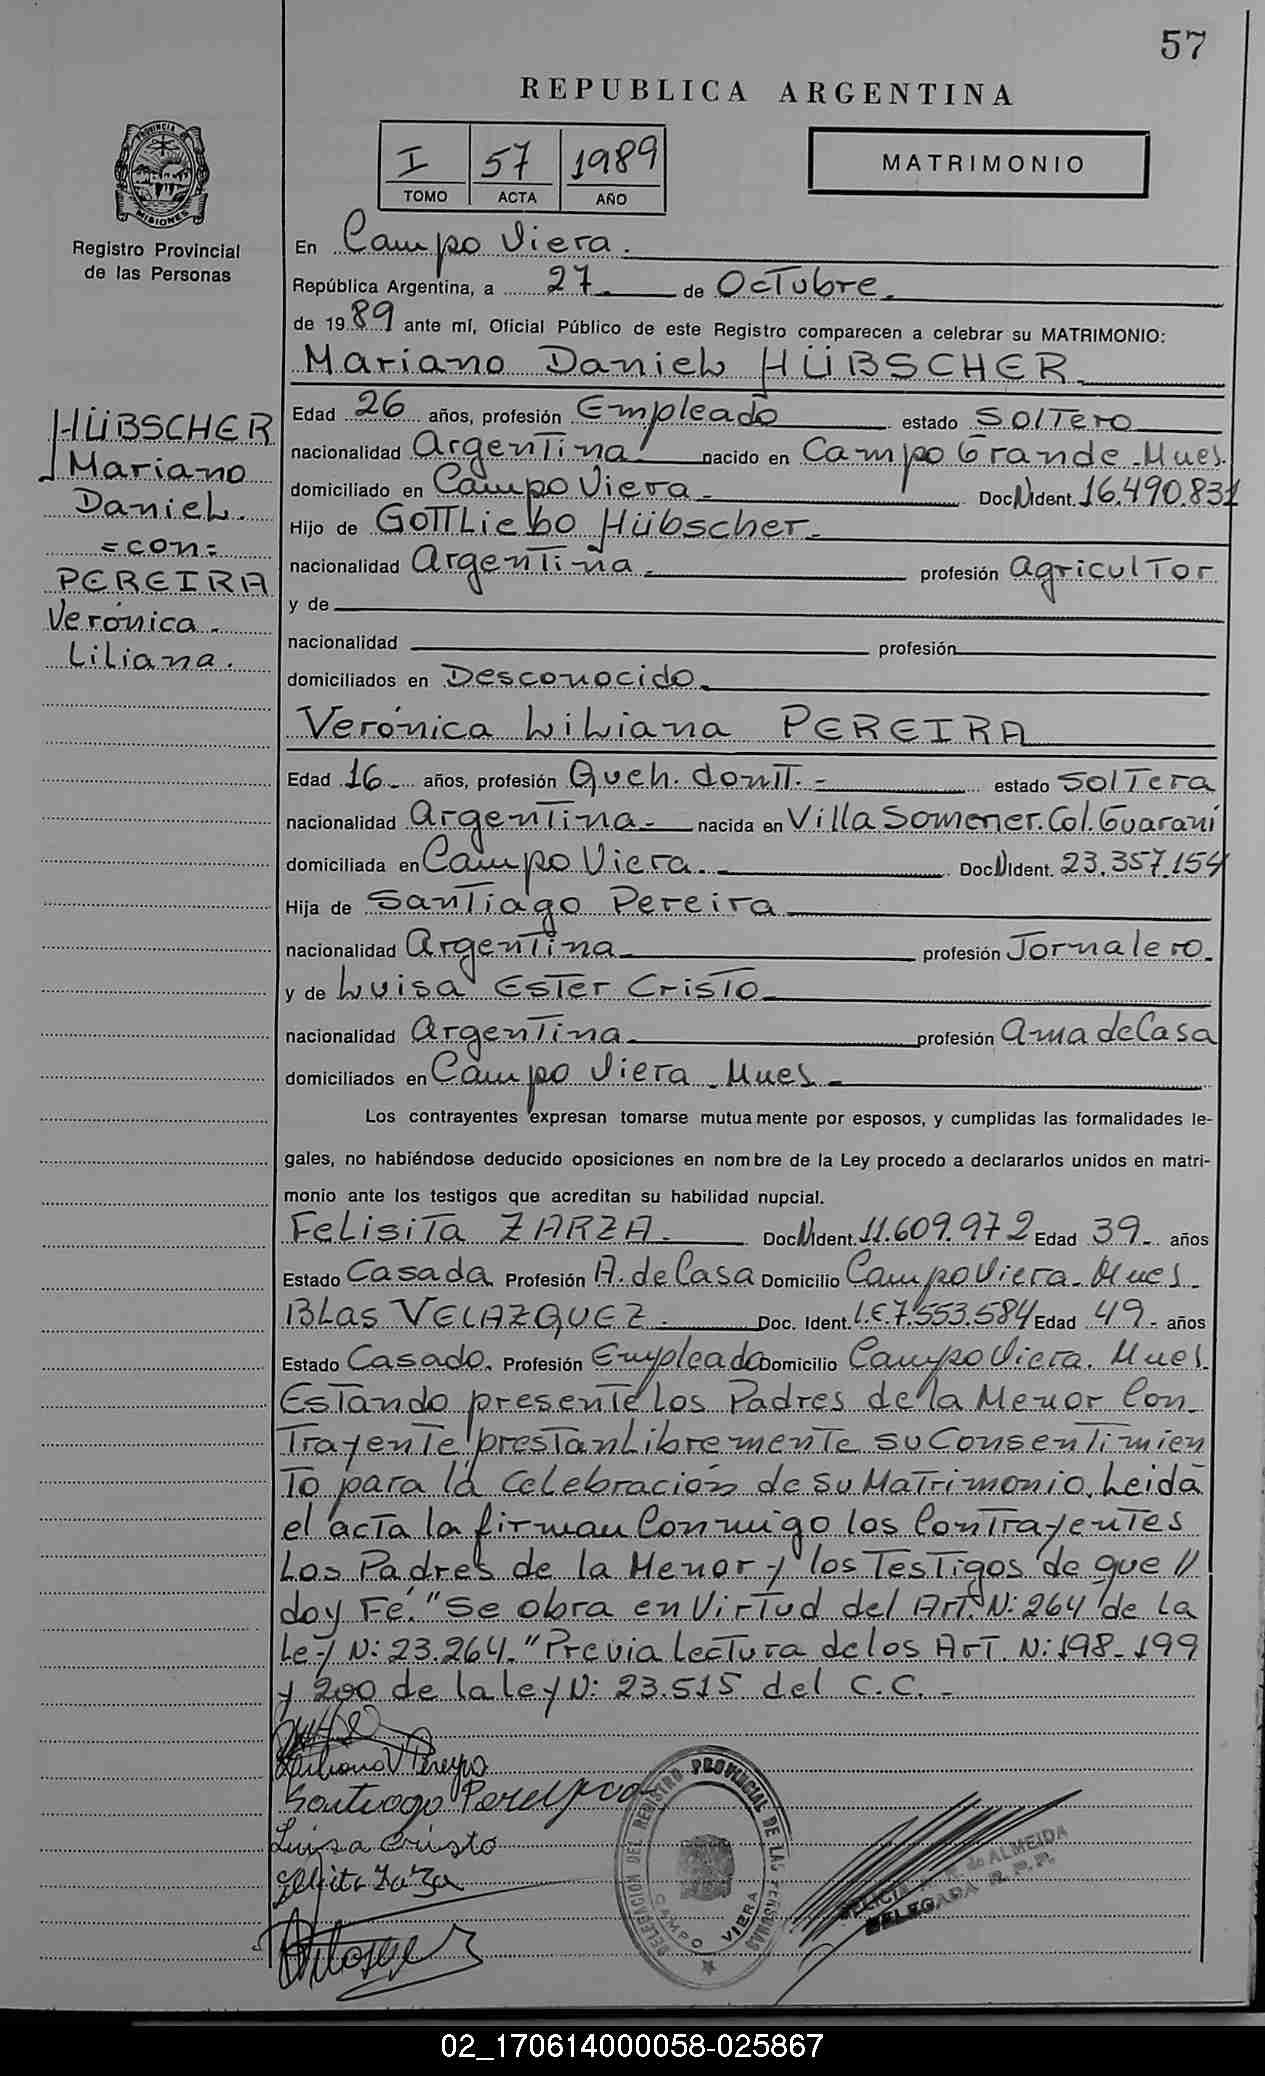 57
REPUBLICA ARGENTINA
PROVINCIA DE MISIONES
Registro Provincial
de las Personas
I 57 1989
TOMO ACTA AÑO
MATRIMONIO
En Campo Viera.
República Argentina, a 27 de Octubre.
de 1989 ante mí, Oficial Público de este Registro comparecen a celebrar su MATRIMONIO:
Mariano Daniel HÜBSCHER
HÜBSCHER
Mariano
Daniel.
=con=
PEREIRA
Verónica.
Liliana.
Edad 26 años, profesión Empleado estado Soltero
nacionalidad Argentina nacido en Campo Grande-Mnes.
domiciliado en Campo Viera- Doc.N.Ident. 16.490.831
Hijo de Gottliebo Hübscher-
nacionalidad Argentina. profesión agricultor
y de
nacionalidad profesión
domiciliados en Desconocido.
Verónica Liliana PEREIRA
Edad 16 años, profesión Queh. domt.- estado Soltera
nacionalidad Argentina- nacida en Villa Somener. Col. Guaraní
domiciliada en Campo Viera.- Doc.N.Ident. 23.357.154
Hija de Santiago Pereira
nacionalidad Argentina profesión Jornalero.
y de Luisa Ester Cristo
nacionalidad Argentina. profesión ama de Casa
domiciliados en Campo Viera-Mnes-
Los contrayentes expresan tomarse mutuamente por esposos, y cumplidas las formalidades le-
gales, no habiéndose deducido oposiciones en nombre de la Ley procedo a declararlos unidos en matri-
monio ante los testigos que acreditan su habilidad nupcial.
Felisita ZARZA. Doc.N.Ident. 11.609.972 Edad 39- años
Estado Casada Profesión A. de Casa Domicilio Campo Viera-Mnes-
Blas VELAZQUEZ. Doc. Ident. L.E.7.553.584 Edad 49- años
Estado Casado. Profesión Empleado Domicilio Campo Viera. Mnes.
Estando presente los Padres de la Menor Con-
trayente prestan Libremente su Consentimien
to para la Celebración de su Matrimonio. Leida
el acta la firman Conmigo los Contrayentes
Los Padres de la Menor y los Testigos de que //
doy Fé." Se obra en Virtud del Art. N: 264 de la
Ley N: 23.264." Previa Lectura de los Art. N: 198-199
y 200 de la ley N: 23.515 del C.C.-
Santiago Pereyra
Luisa Cristo
DELEGACION DEL REGISTRO PROVINCIAL DE LAS PERSONAS
CAMPO VIERA
de ALMEIDA
DELEGADA R.P.P.
02_170614000058-025867